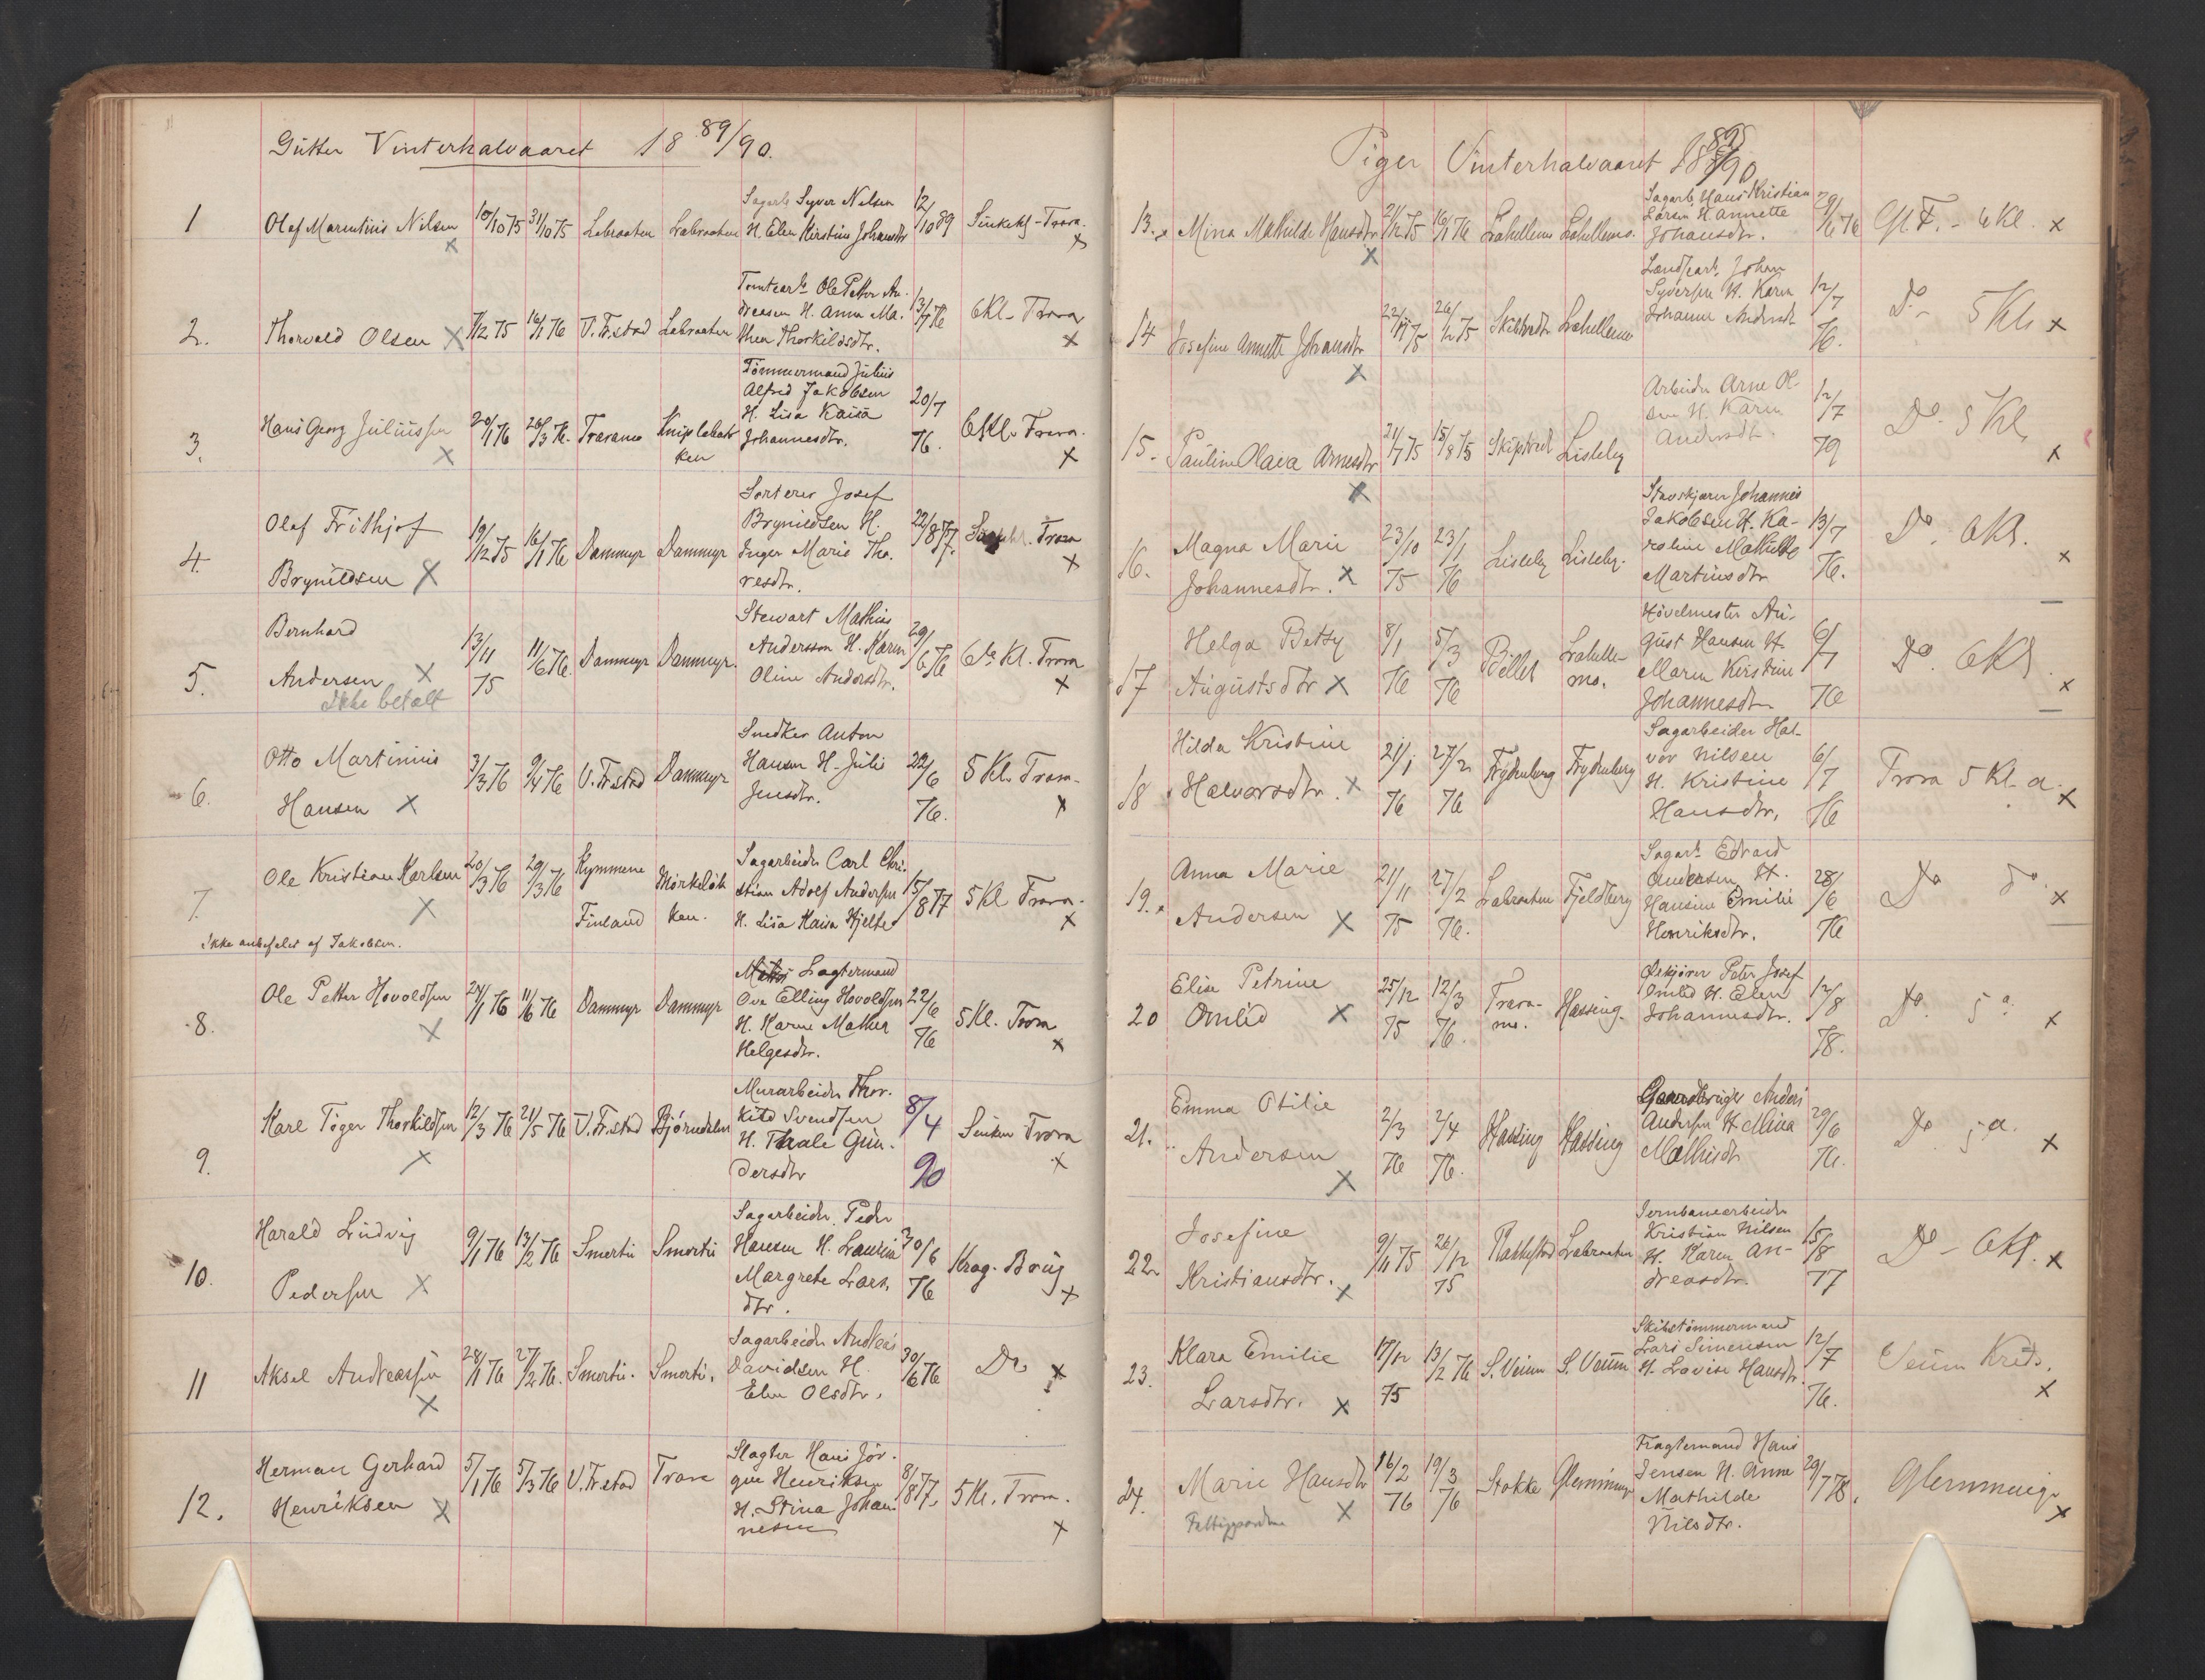 Gutter Vinterhalvaaret 18 89/90.
1 Olaf Marentius Nilsen 10/10 75 31/10 75 Labraaten Labraaten Sagarb. Syver Nilsen H. Elen Kirstine Johansdtr 12/10 89 Sinkekl - Trara. x
2. Thorvald Olsen x 7/12 75 16/1 76 V. Fr.stad Labraaten Tomtearb. Ole Petter An-
dreasen H. Anna Ma-
thea Thorkildsdtr. 13/7 76 6Kl - Trara x
3. Hans Georg Juliussen x 20/1 76 26/3 76. Traramo Kniplebak
ken
Tömmermand Julius
Alfred Jakobsen
H. Lisa Kaisa
Johannesdtr. 20/7 76. 6Kl. Trara. x
4. Olaf Frithjof
Brynildsen x 19/12 75 16/1 76 Dammyr Dammyr
Sorterer Josef
Brynildsen H.
Inger Marie Tho-
resdtr. 22/8 77. Trara x
5. Bernhard
Andersen x 13/11 75 11/6 76. Dammyr Dammyr.
Ikke betalt
Stewart Mathias
Andersson H. Karen
Oline Andersdtr. 29/6 76 6te Kl. Trara x
6. Otto Martinius
Hansen x 3/3 76 9/4 76 V. Fr.stad Dammyr
Snedker Anton
Hansen H. Juli
Jensdtr. 22/6 76. 5 Kl. Trara- x
7. Ole Kristian Karlsen x 20/3 76 29/3 76 Kymmene
Finland
Mörkeløk
ken.
Sagarbeider Carl Chri-
stian Adolf Andersen
H. Lisa Kaisa Hjelte 15/8 77 5 Kl Trara. x
Ikke anbefalet af Jakobsen.
8. Ole Petter Hovoldsen x 24/1 76 11/6 76 Dammyr Dammyr
Lagtermand
Ove Elling Hovoldsen
H. Karen Mathea
Helgesdtr. 22/6 76 5 Kl. Trara x
9. Karl Tøger Thorkildsen x 12/3 76 21/5 76 V. Fr.stad Bjørndalen
Murarbeider Thor-
kild Svendsen
H. Thale Gun-
dersdtr 8/4 90 Sinken Trara x
10. Harald Ludvig
Pedersen x 9/1 76 13/2 76 Smertu Smertu
Sagarbeider Peder
Hansen H. Lauisa
Margrete Lars.
dtr. 30/6 76 Krag. Brug x
11 Aksel Andreassen x 28/1 76 27/2 76. Smertu. Smertu.
Sagarbeider Andreas
Davidsen H.
Elen Olsdtr. 30/6 76 Do x
12. Herman Gerhard
Henriksen x 5/1 76 5/3 76 V. Fr.stad Trara
Slagter Hans Jör-
gen Henriksen
H. Stina Johan
nesen 8/8 77. 5 Kl. Trara. x
Piger Vinterhalvaaret 1889/90
13. Mina Mathilde Hansdtr x 21/12 75 16/1 76 Lahellemo Lahellemo.
Sagarb. Hans Kristian
Larsen H Annette
Johansdtr. 29/6 76 Gl. F. - 6Kl. x
14 Josefine Annette Johansdtr x 22/11 75 26/12 75 Skibtvedt Lahellemo
Landsearb. Johan
Syversen H. Karen
Johanne Andersdtr 12/7 76. Do - 5 Kl. x
15. Pauline Olava Arnesdtr x 21/7 75 15/8 75 Skiptvet Lisleby
Arbeider Arne Ol-
sen H. Karen
Andersdtr. 12/7 79 Do. 5 Kl. x
16. Magna Marie
Johannesdtr. x 23/10 75 23/1 76 Lisleby Lisleby.
Stavskjærer Johannes
Jakobsen H. Ka-
roline Mathilde
Martinsdtr 13/7 76. Do. 6Kl. x
17 Helga Betsy
Augustsdtr x 8/1 76 5/3 76 Pellet Lahelle-
mo.
Hövelmester Au-
gust Hansen H
Maren Kirstine
Johannesdtr 6/7 76 Do. 6Kl. x
18 Hilda Kristine
Halvorsdtr. x 21/1 76 27/2 76 Frydenberg Frydenberg
Sagarbeider Hal-
vor Nilsen
H. Kristine
Hansdtr, 6/7 76 Trara 5 Kl. a. x
19. Anna Marie
Andersen x 21/11 75 27/2 76. Labraaten Fjeldberg
Sagarb. Edvard
Andersen H.
Hansine Emilie
Henriksdtr. 28/6 76 Do do x
20 Elise Petrine
Omlid x 25/12 75 12/3 76. Trara-
mo. Hassing.
Peter Josef
Omlid H. Elen
Johannesdtr. 12/8 78. Do. 5 a. x
21. Emma Otilie
Andersen x 2/3 76 2/4 76. Hassing Hassing
Gaardbruger Anders
Andersen H Mina
Mathisdtr 29/6 76. Do 5 a. x
22. Josefine
Kristiansdtr. x 9/11 75 26/12 75 Rakkestad Labraaten
Jernbanearbeider
Kristian Nilsen
H. Karen An-
dreasdtr. 15/8 77 Do - 6Kl. x
23. Klara Emilie
Larsdtr. x 17/12 75 13/2 76 S. Veum S. Veum
Skibstömmermand
Lars Simensen
H. Lovise Hansdtr. 12/7 76. Veum Kreds. x
24. Marie Hansdtr x 16/2 76 19/3 76 Stokke Glemminge
Fragtemand Hans
Jensen H. Anne
Mathilde
Nilsdtr. 29/7 78. Glemminge x